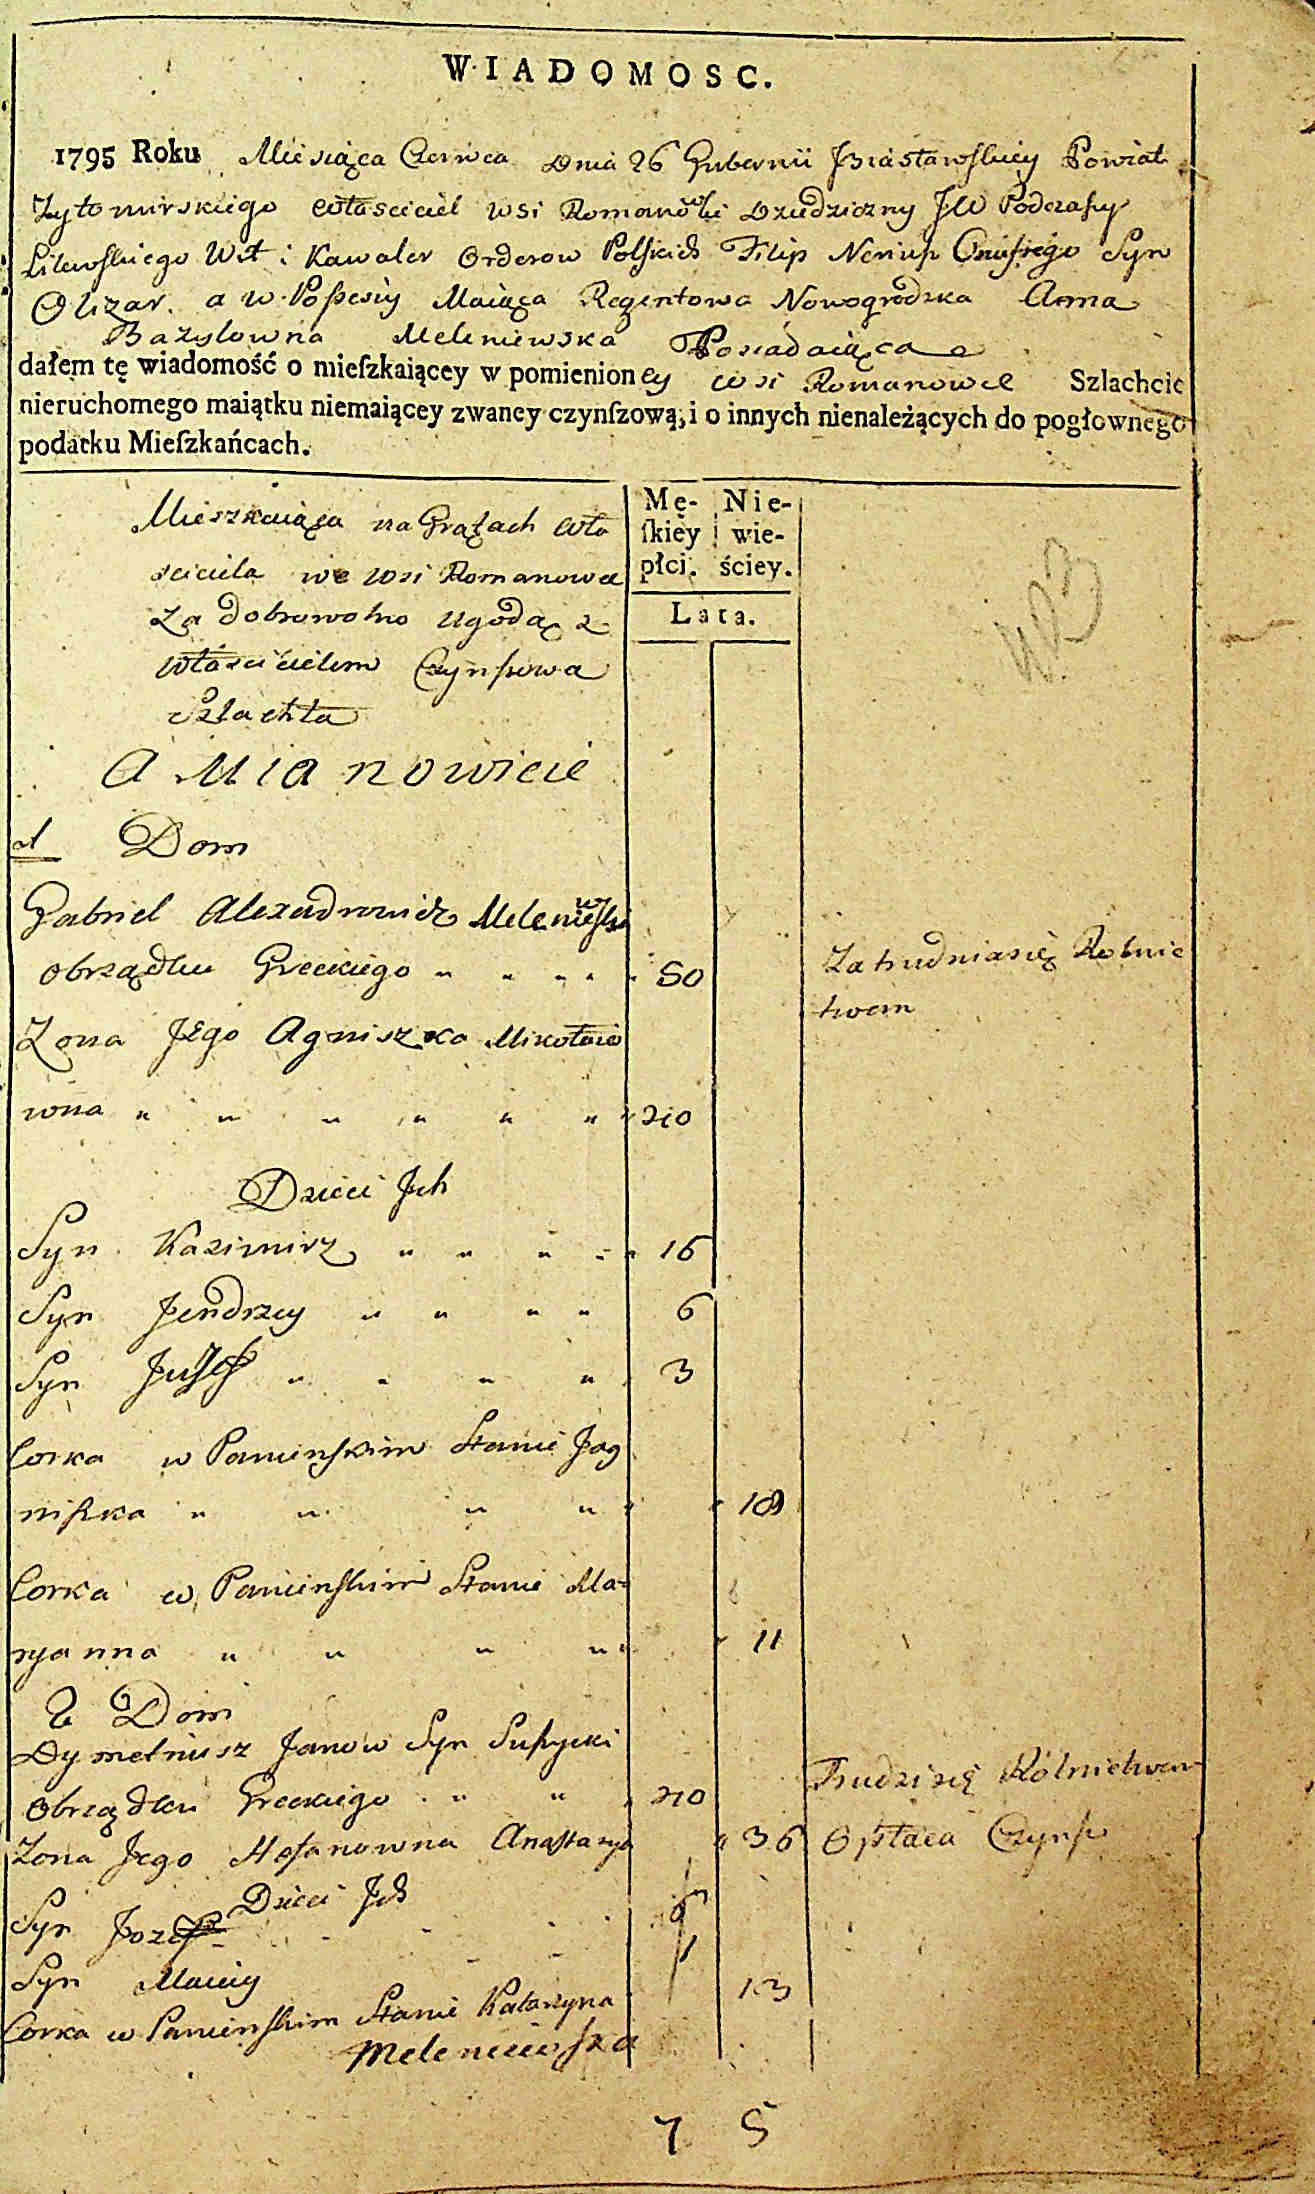 WIADOMOSC.
1795 Roku Miesiąca Czerwca Dnia 26 Gubernii Braslawskiey Powiat
Zytomirskiego własciciel wsi Romanowki Dziedziczny JW Podczaszy
Litewskiego Wit i Kawaler Orderow Polskich Filip Neriusz Onufrego Syn
Olizar. a w Possesiy Maiąca Regentowa Nowogrodzka Anna
Bazylowna Meleniewska Posiadaiąca
dałem tę wiadomość o mieſzkaiącey w pomienioney wsi Romanowce Szlachcie
nieruchomego maiątku niemaiącey zwaney czynſzową, i o innych nienależących do pogłownego
podatku Mieſzkańcach.
Mę- Nie-
ſkiey wie-
płci. ściey.
Lata.
Mieszkaiąca na Grątach wła
sciciela we wsi Romanowce
za dobrowolno ugodą z
włascicielem Czynszowa
Szlachta
A Mianowicie
1 Dom
Gabriel Alexadrowicz Meleniewski
obrządku Greckiego " " " " 50 Zatrudniasię Rolnic
twem
Zona Jego Agniszka Mikołaio
wna " " " " " " 40
Dzieci Jch
Syn Kazimirz " " " " 16
Syn Jendrzey " " " " 6
Syn Juzef " " " " 3
Corka w Panienskim Stanie Jag
niszka " " " " 18
Corka w Panienskim Stanie Ma-
ryanna " " " " 11
2 Dom
Dymetriusz Janow Syn Suszycki
obrządku Greckiego " " 40 Trudzisię Rólnictwem
Zona Jego Stefanowna Anastazya " 36 Opłaca Czynsz
Dzieci Jch
Syn Jozef 6
Syn Maciey 1
Corka w Panienskim Stanie Katarzyna 13
Meleniewska
7 5